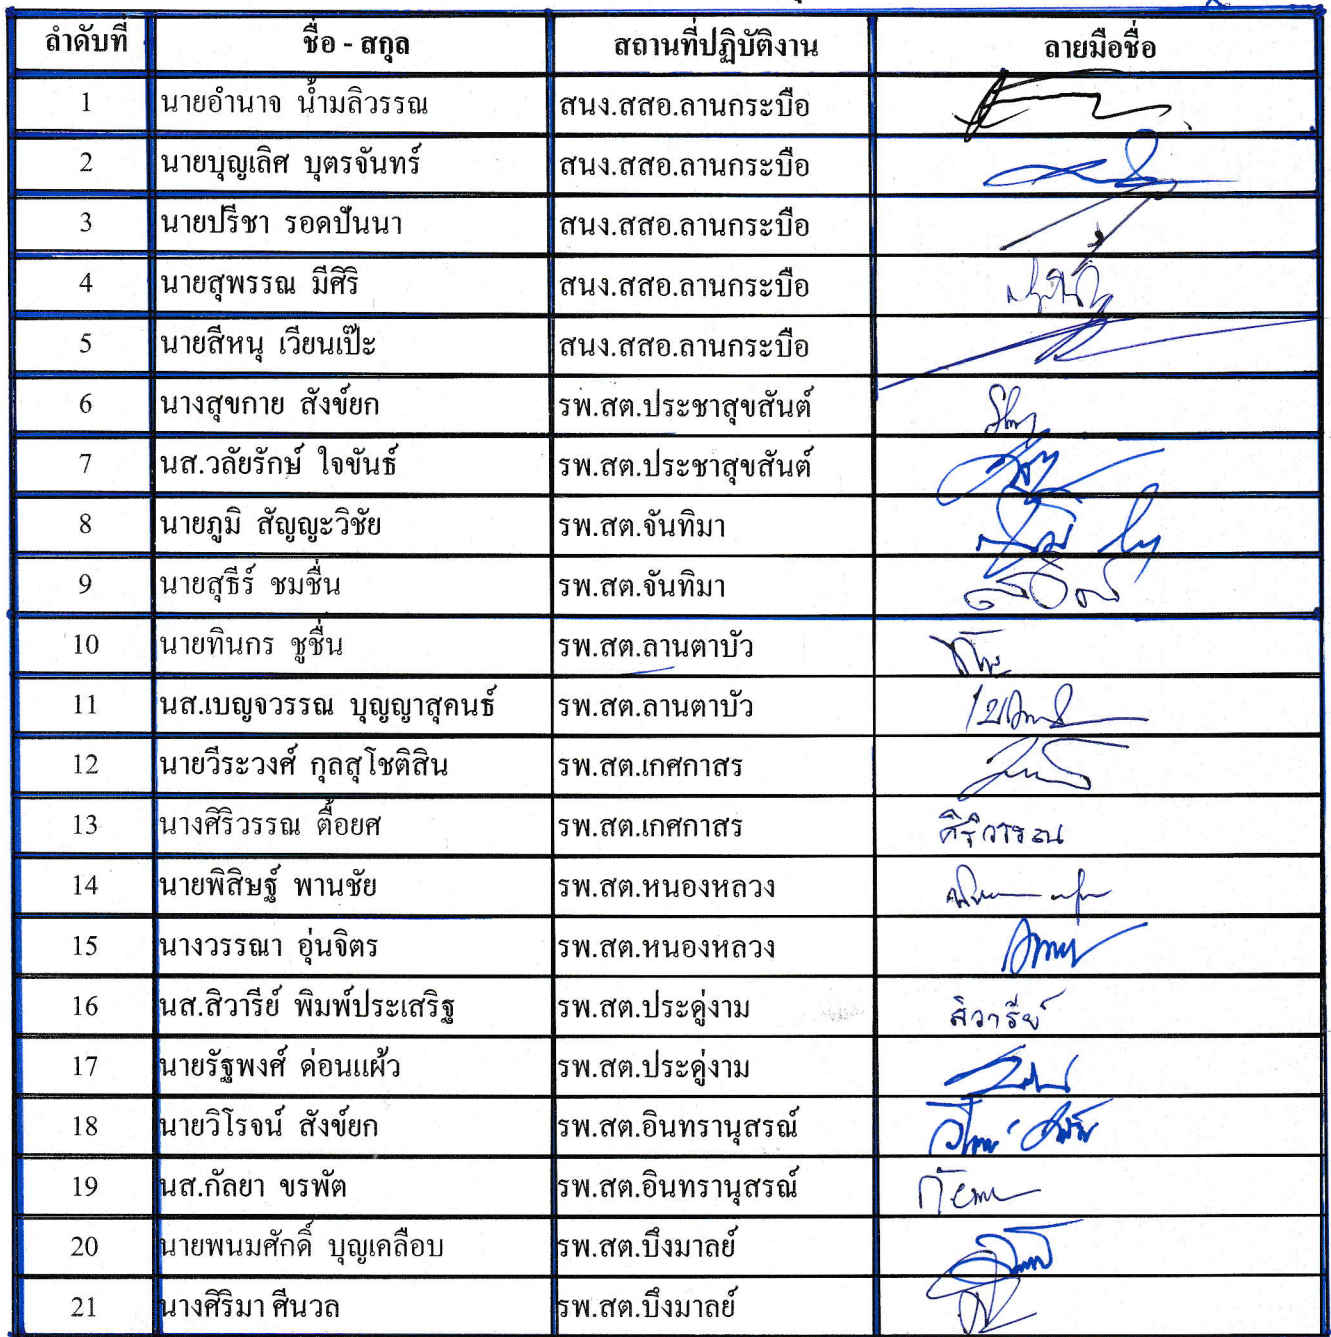 ลำดับที่ ชื่อ - สกุล สถานที่ปฏิบัติงาน ลายมือชื่อ
1 นายอำนาจ น้ำมลิวรรณ สนง.สสอ.ลานกระบือ
2 นายบุญเลิศ บุตรจันทร์ สนง.สสอ.ลานกระบือ
3 นายปรีชา รอดปันนา สนง.สสอ.ลานกระบือ
4 นายสุพรรณ มีศิริ สนง.สสอ.ลานกระบือ
5 นายสีหนุ เวียนเป๊ะ สนง.สสอ.ลานกระบือ
6 นางสุขกาย สังข์ยก รพ.สต.ประชาสุขสันต์
7 นส.วลัยรักษ์ ใจขันธ์ รพ.สต.ประชาสุขสันต์
8 นายภูมิ สัญญะวิชัย รพ.สต.จันทิมา
9 นายสุธีร์ ชมชื่น รพ.สต.จันทิมา
10 นายทินกร ชูชื่น รพ.สต.ลานตาบัว
11 นส.เบญจวรรณ บุญญาสุคนธ์ รพ.สต.ลานตาบัว
12 นายวีระวงศ์ กุลสุโชติสิน รพ.สต.เกศกาสร
13 นางศิริวรรณ ตื้อยศ รพ.สต.เกศกาสร ศิริวรรณ
14 นายพิสิษฐ์ พานชัย รพ.สต.หนองหลวง
15 นางวรรณา อุ่นจิตร รพ.สต.หนองหลวง
16 นส.สิวารีย์ พิมพ์ประเสริฐ รพ.สต.ประดู่งาม สิวารีย์
17 นายรัฐพงศ์ ด่อนแผ้ว รพ.สต.ประดู่งาม
18 นายวิโรจน์ สังข์ยก รพ.สต.อินทรานุสรณ์
19 นส.กัลยา ขรพัต รพ.สต.อินทรานุสรณ์
20 นายพนมศักดิ์ บุญเคลือบ รพ.สต.บึงมาลย์
21 นางศิริมา ศีนวล รพ.สต.บึงมาลย์